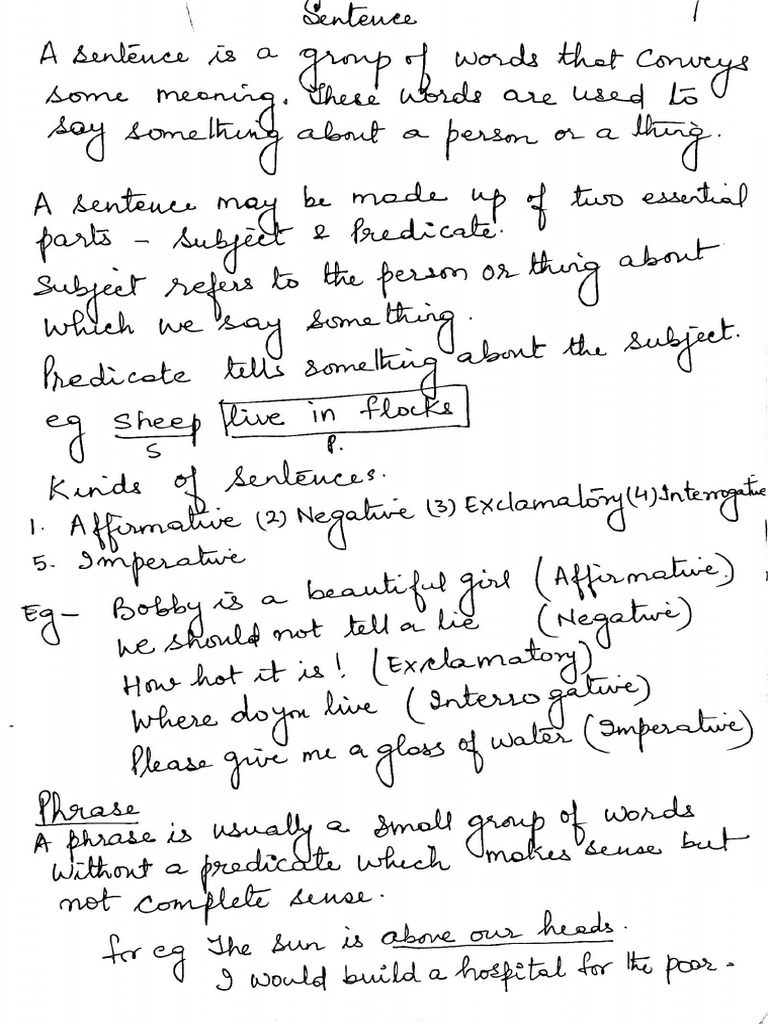 Sentence
A sentence is a group of words that conveys
some meaning. These words are used to
say something about a person or a thing.
A sentence may be made up of two essential
parts - Subject & Predicate.
Subject refers to the person or thing about
which we say something.
Predicate tells something about the subject.
eg Sheep live in flocks
S P.
Kinds of Sentences.
1. Affirmative (2) Negative (3) Exclamatory (4) Interrogative
5. Imperative
Eg- Bobby is a beautiful girl (Affirmative)
We should not tell a lie (Negative)
How hot it is! (Exclamatory)
Where do you live (Interrogative)
Please give me a glass of water (Imperative)
Phrase
A phrase is usually a small group of words
without a predicate which makes sense but
not complete sense.
for eg The sun is above our heads.
I would build a hospital for the poor.